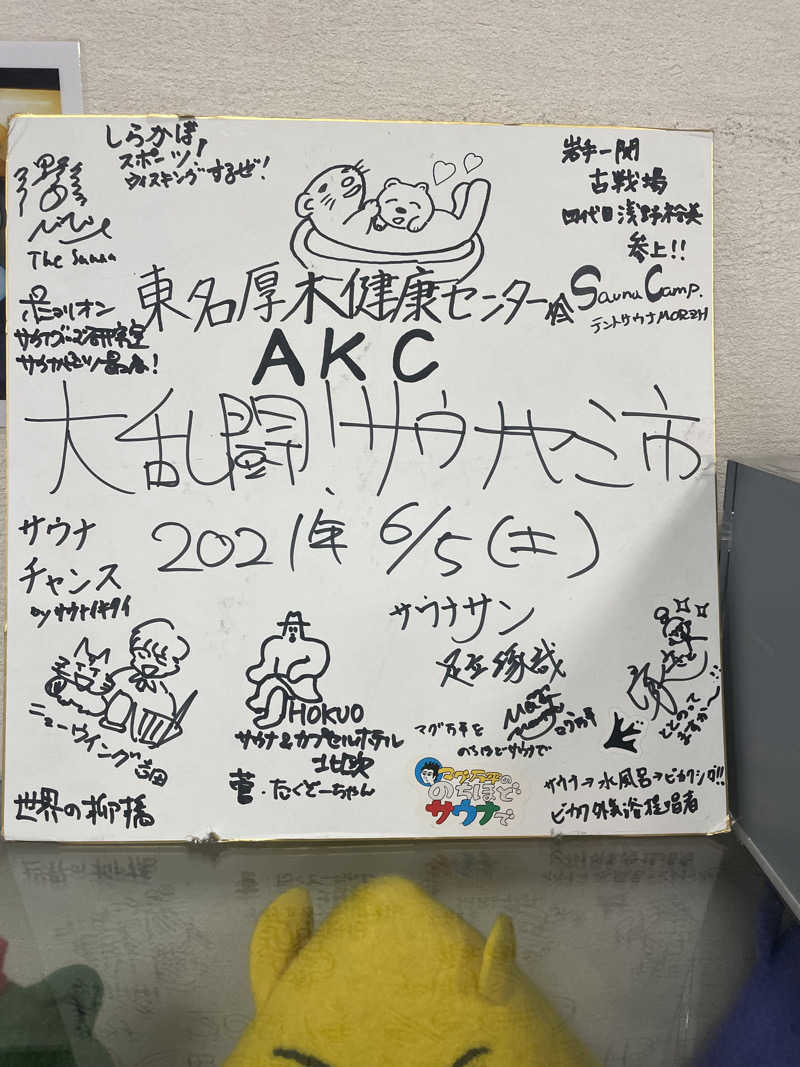 しらかば
スポーツ!
ウィスキングするぜ!
The Sauna
岩手一関
古戦場
四代目浅野裕美
参上!!
東名厚木健康センター
Sauna Camp.
テントサウナMORZH
AKC
サウナグッズ研究室
大乱闘!サウナヤミ市
2021年 6/5(土)
サウナ
チャンス
by サウナイキタイ
サウナサン
ニューウイング吉田
世界の柳橋
HOKUO
サウナ&カプセルホテル
北欧
菅・たくどーちゃん
マグ万平を
のちほどサウナで
マグ万平の
のちほど
サウナで
ととのって
ますかー
サウナ→水風呂→ピカクシグ!!
外気浴提唱者